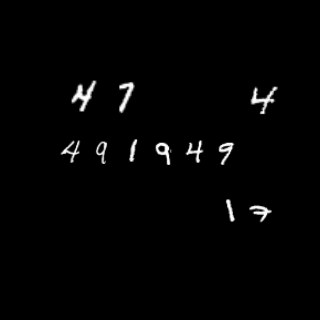 47 4
491949
17